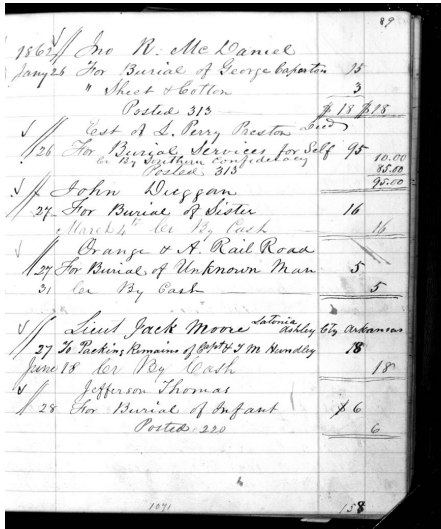 89
1862 Jno R. McDaniel
Jany 26 For Burial of George Caperton 15
" Sheet & Cotton 3
Posted 313 $18 $18
Est of S. Perry Preston Decd
26 For Burial Services for Self 95
Cr By Southern Confederacy 10.00
Posted 313 85.00
95.00
John Duggan
27 For Burial of Sister 16
March 4th Cr By Cash 16
Orange & A. Rail Road
27 For Burial of Unknown Man 5
31 Cr By Cash 5
Lieut Jack Moore Latonia Ashley Cty Arkansas
27 To Packing Remains of Cpt & T M Hundley 18
June 18 Cr By Cash 18
Jefferson Thomas
28 For Burial of Infant 6
Posted 220 6
1071 158